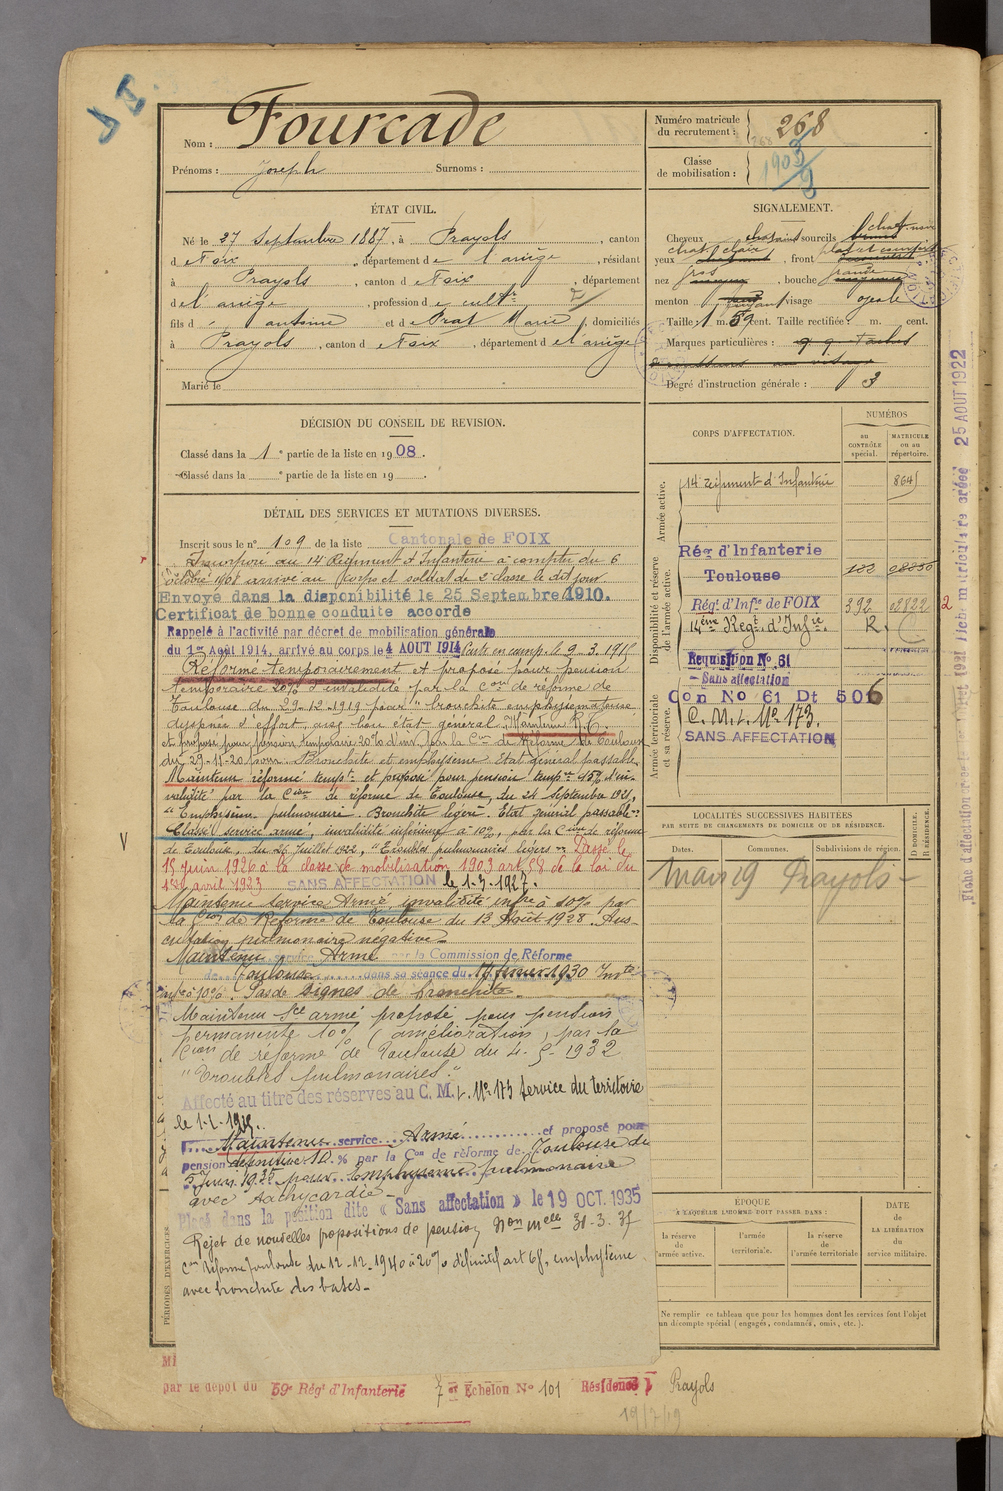 Nom : Fourcade
Prénoms : Joseph Surnoms :
ÉTAT CIVIL.
Né le 27 Septembre 1887, à Prayols, canton
d Foix, département de l'Ariège, résidant
à Prayols, canton d Foix, département
de l'Ariège, profession de cultr
fils d antoine et de Prat Marie, domiciliés
à Prayols, canton d Foix, département de l'Ariège
Marié le
DÉCISION DU CONSEIL DE REVISION.
Classé dans la 1e partie de la liste en 1908.
Classé dans la e partie de la liste en 19
DÉTAIL DES SERVICES ET MUTATIONS DIVERSES.
Inscrit sous le n° 109 de la liste Cantonale de FOIX
Incorporé au 14e Régiment d'Infanterie à compter du 6
octobre 1908 arrivé au Corps et soldat de 2e classe le dit jour.
Envoyé dans la disponibilité le 25 Septembre 1910.
Certificat de bonne conduite accordé
Rappelé à l'activité par décret de mobilisation générale
du 1er Août 1914, arrivé au corps le 4 AOUT 1914 Parti en camp. le 9-3-1915
Réformé temporairement et proposé pour pension
temporaire 20% d'invalidité par la Con de réforme de
Toulouse du 29-12-1919 pour "bronchite emphysémateuse
dyspnée d'effort, assez bon état général. Maintenu R.T.
et proposé pour pension temporaire 20% d'inv. par la Con de Réforme de Toulouse
du 29-11-20 pour Bronchite et emphysème Etat général passable.
Maintenu réformé tempt et proposé pour pension tempre 15% d'in-
validité par la Cion de réforme de Toulouse, du 24 septembre 1921,
"Emphysème pulmonaire. Bronchite légère. Etat général passable."
Classé service armé, invalidité inférieure à 10%, par la Cion de réforme
de Toulouse, du 26 Juillet 1922, "Troubles pulmonaires légers". Passé le
15 juin 1926 à la classe de mobilisation 1903 art 58 de la loi du
1er avril 1923 SANS AFFECTATION le 1-5-1927.
Maintenu service Armé, invalidité infre à 10% par
la Con de Réforme de Toulouse du 13 Août 1928. Aus-
cultation pulmonaire négative.
Maintenu service Armé par la Commission de Réforme
de Toulouse dans sa séance du 17 février 1930 Invté
infre à 10%. Pas de signes de bronchite.
Maintenu sce armé proposé pour pension
permanente 10% (amélioration) par la
Cion de réforme de Toulouse du 4-5-1932
"Troubles pulmonaires."
Affecté au titre des réserves au C.M.I. No 173 Service du territoire
Maintenu service Armé et proposé pour
pension définitive 10 % par la Con de réforme de Toulouse du
5 Juin 1935 pour Emphysème pulmonaire
avec Tachycardie
Placé dans la position dite « Sans affectation » le 19 OCT. 1935
Rejet de nouvelles propositions de pension, Non melle 31-3-37
Con réforme Toulouse du 12-12-1940 à 20% définitif art 68, emphysème
avec bronchite des bases.
PÉRIODES D'EXERCICES
par le dépôt du 59e Régt d'Infanterie 7 er Echelon No 101 Résidence Prayols
19/7/19
Numéro matricule du recrutement : 268
Classe de mobilisation : 1903
SIGNALEMENT.
Cheveux sourcils
yeux chat. clairs, front
nez gros, bouche grande
menton visage ovale
Taille : 1 m. 59 cent. Taille rectifiée : m. cent.
Marques particulières :
Degré d'instruction générale : 3
CORPS D'AFFECTATION.
NUMÉROS
au CONTRÔLE spécial.
MATRICULE ou au répertoire.
Armée active.
14e régiment d'Infanterie 8645
Disponibilité et réserve de l'armée active.
Rég d'Infanterie
Toulouse
Régt d'Infie de FOIX 392
14ème Regt d'Infie. R.
Requisition No 61
- Sans affectation
Armée territoriale et sa réserve.
Con No 61 Dt 506
C.M.I. No 173.
SANS AFFECTATION
LOCALITÉS SUCCESSIVES HABITÉES
PAR SUITE DE CHANGEMENTS DE DOMICILE OU DE RÉSIDENCE.
Dates. Communes. Subdivisions de région. D DOMICILE. R RÉSIDENCE.
Mars 19 Prayols
ÉPOQUE
À LAQUELLE L'HOMME DOIT PASSER DANS :
la réserve de l'armée active.
l'armée territoriale.
la réserve de l'armée territoriale
DATE de LA LIBÉRATION du service militaire.
Ne remplir ce tableau que pour les hommes dont les services font l'objet
un décompte spécial (engagés, condamnés, omis, etc.).
Fiche matriculaire créée 25 AOUT 1922